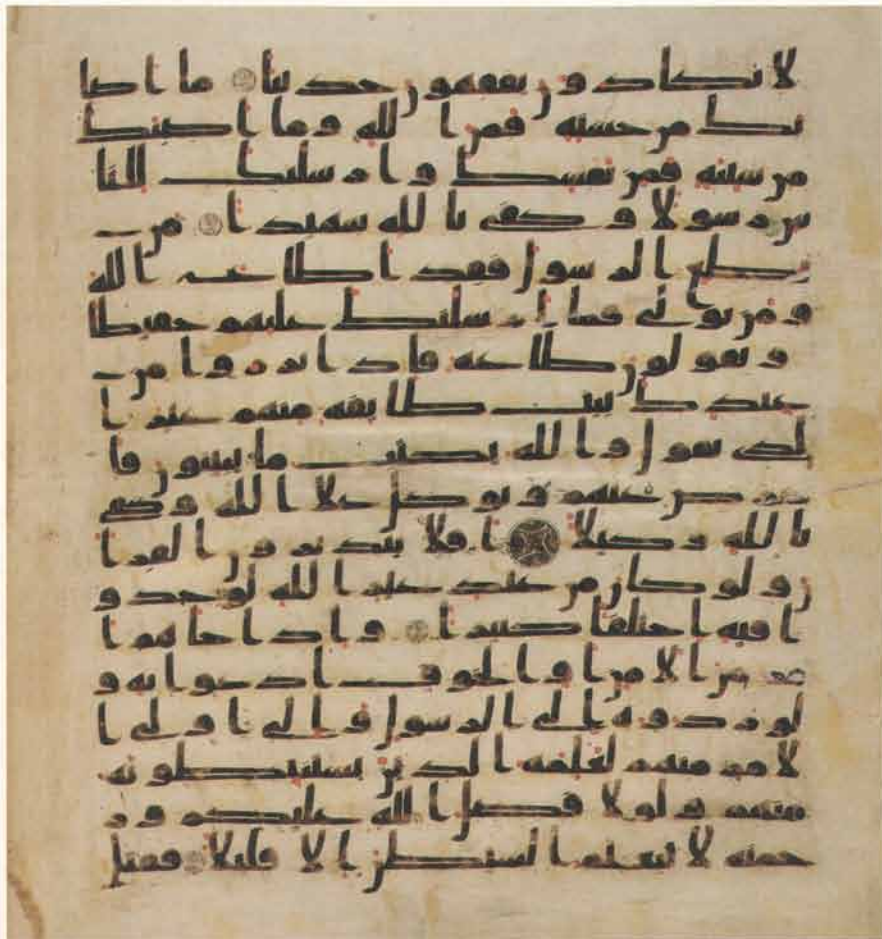 لا يكادون يفقهون حديثا ما اصا
بك من حسنة فمن الله وما اصبك
من سيئة فمن نفسك وارسلنك للنا
س رسولا وكفى بالله شهيدا من
يطع الرسول فقد اطاع الله
ومن تولى فما ارسلنك عليهم حفيظا
ويقولون طاعة فاذا برزوا من
عندك بيت طايفة منهم غير ا
لذى تقول والله يكتب ما يبيتون فا
عرض عنهم وتوكل علا الله وكفى
بالله وكيلا ا فلا يتدبرون القرا
ن ولو كان من عند غير الله لوجدو
ا فيه اختلفا كثيرا واذا جاهم ا
مر من الامن او الخوف اذاعوا به و
لو ردوه الى الرسول والى اولى ا
لامر منهم لعلمه الذين يستنبطونه
منهم ولولا فضل الله عليكم ور
حمته لاتبعتم الشيطن الا قليلا فقتل